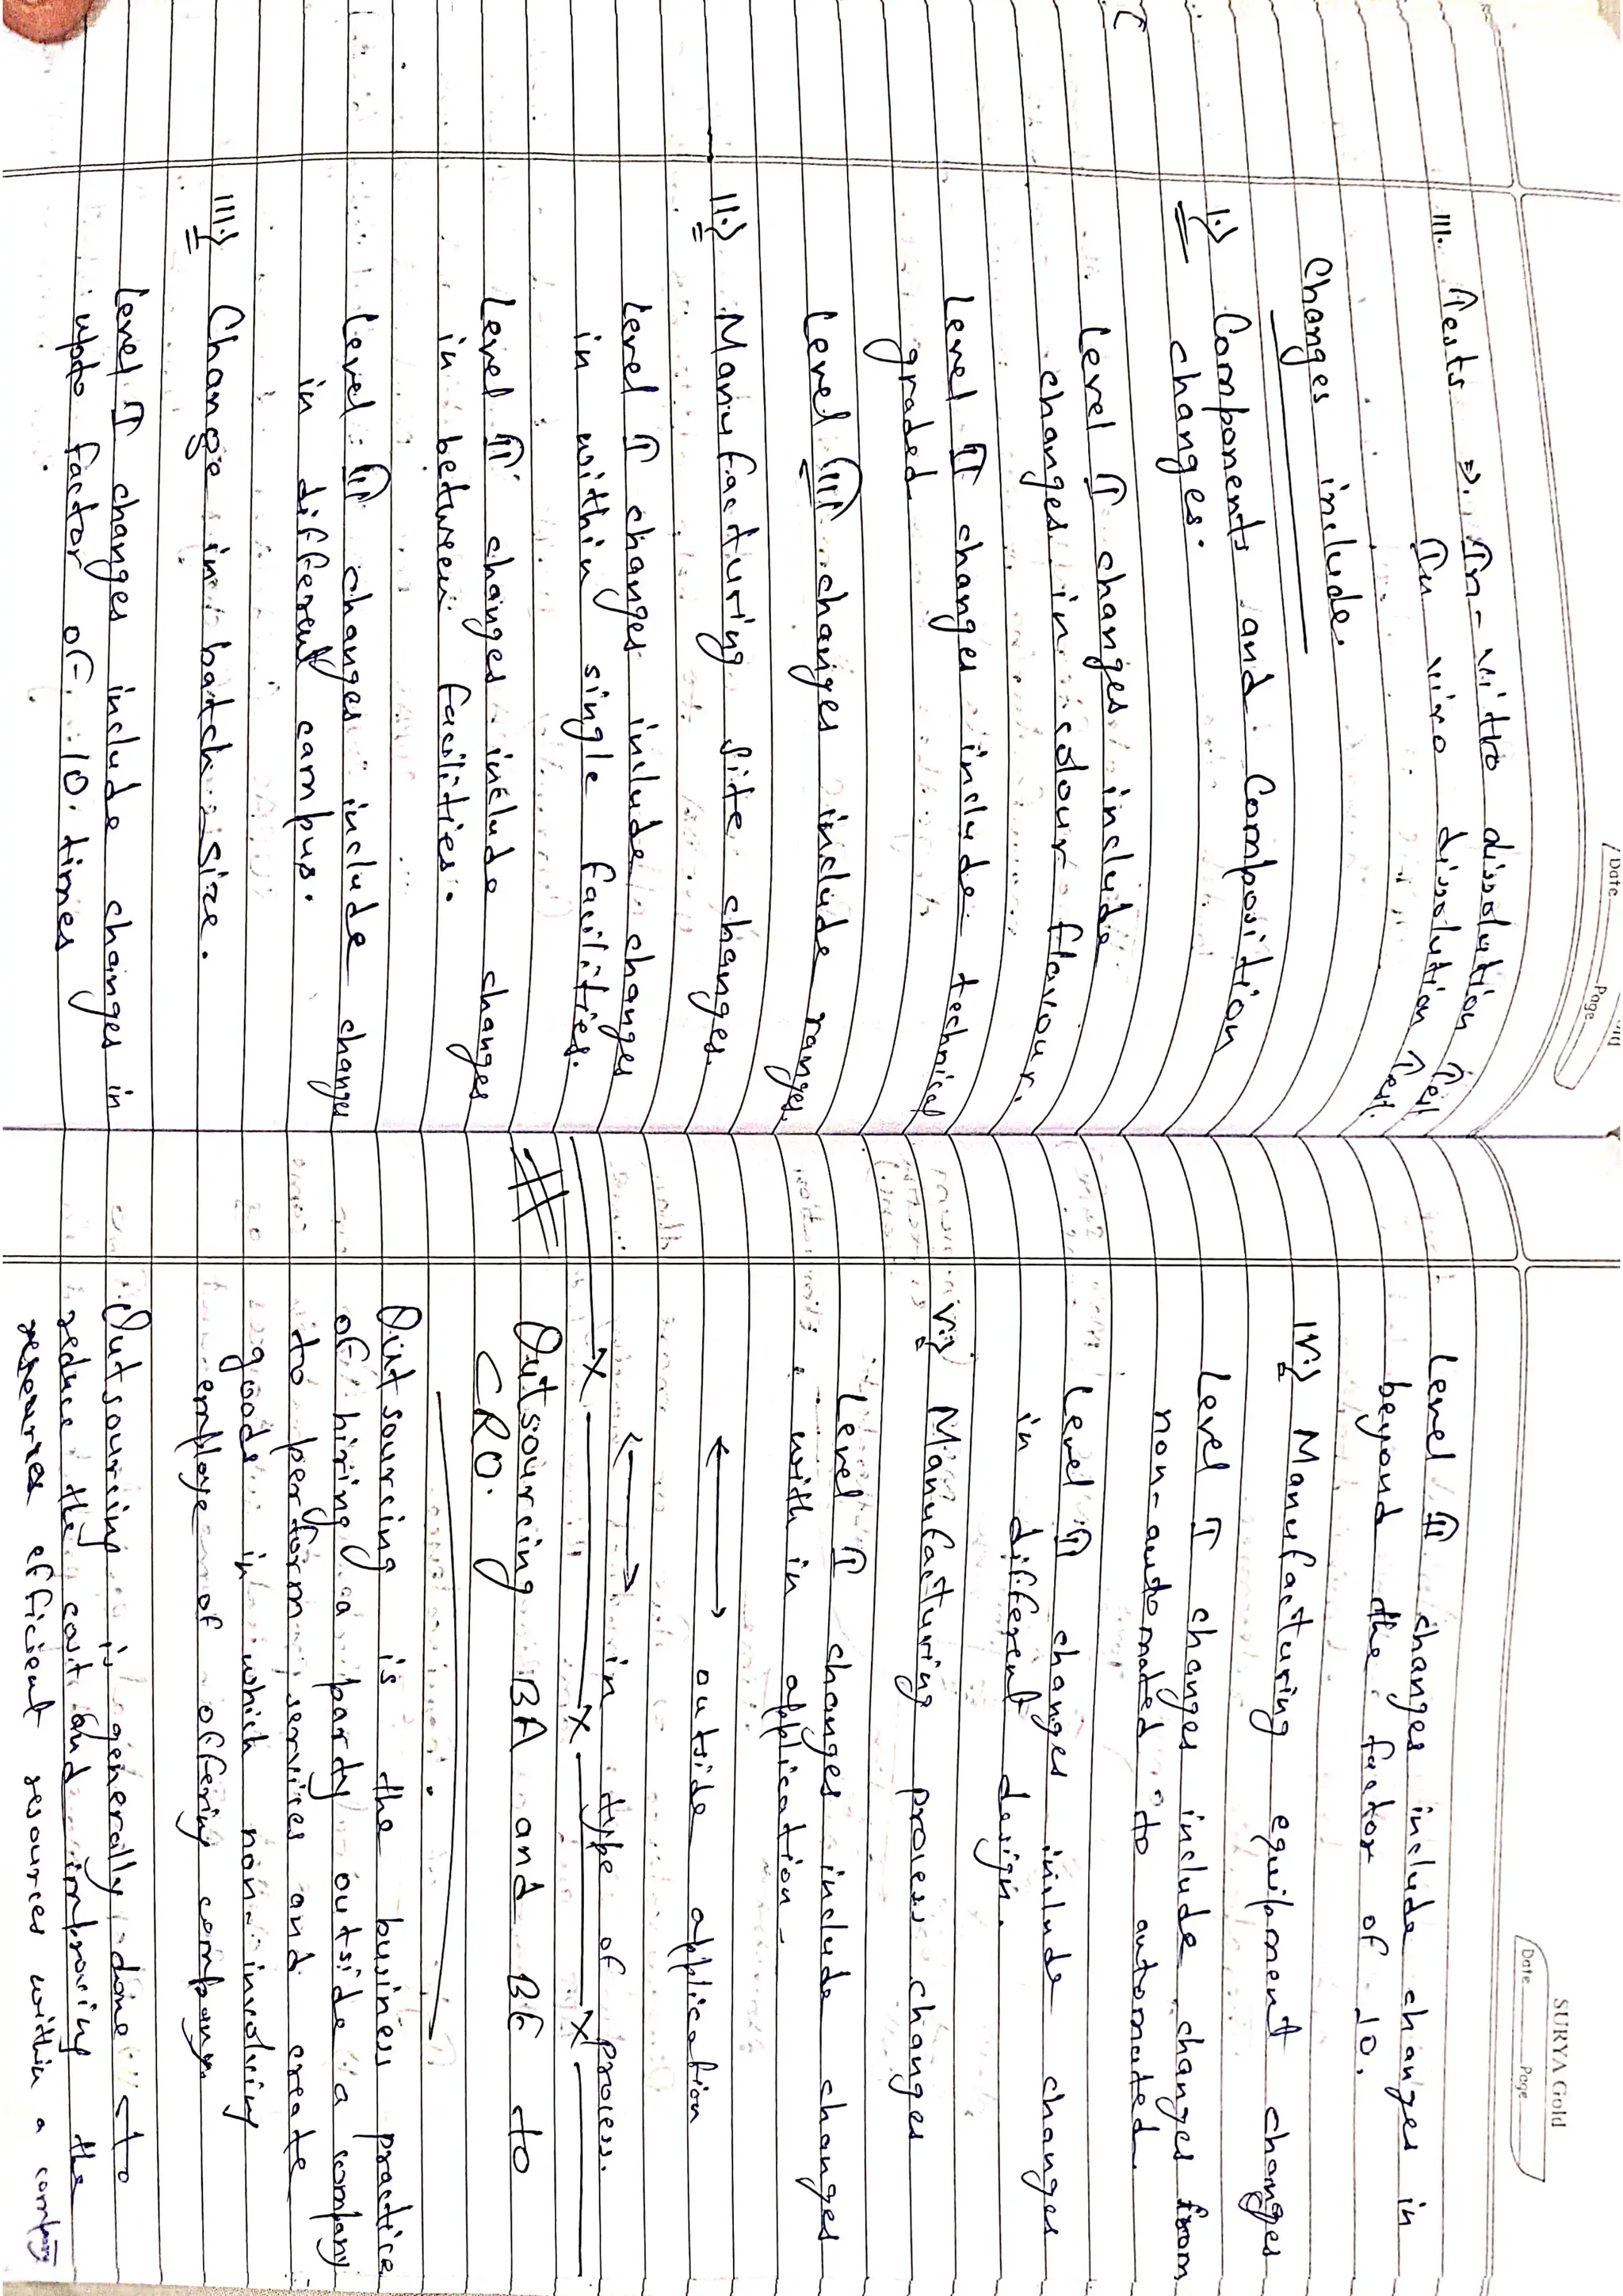 Date Page
III. Tests => In-vitro dissolution Test
In vivo dissolution Test.
Changes include.
I.> Components and Composition
changes.
Level I changes include
changes in colour flavour.
Level II changes include technical
graded
Level III changes include ranges.
II.> Manufacturing site changes.
Level I changes include changes
in within single facilities.
Level II changes include changes
in between facilities.
Level III changes include changes
in different campus.
III.> Change in batch size.
Level I changes include changes in
upto factor of 10 times
SURYA Gold
Date Page
Level II changes include changes in
beyond the factor of 10.
IV.> Manufacturing equipment changes
Level I changes include changes from
non-automated to automated.
Level II changes include changes
in different design.
V.> Manufacturing process changes
Level I changes include changes
with in application-
←→ outside application
←→ in type of process.
X X X
# Outsourcing BA and BE to
CRO.
Outsourcing is the business practice
of hiring a party outside a company
to perform services and create
goods in which non-involving
employe of offering company
Outsourcing is generally done to
reduce the cost and improving the
efficient resources within a company